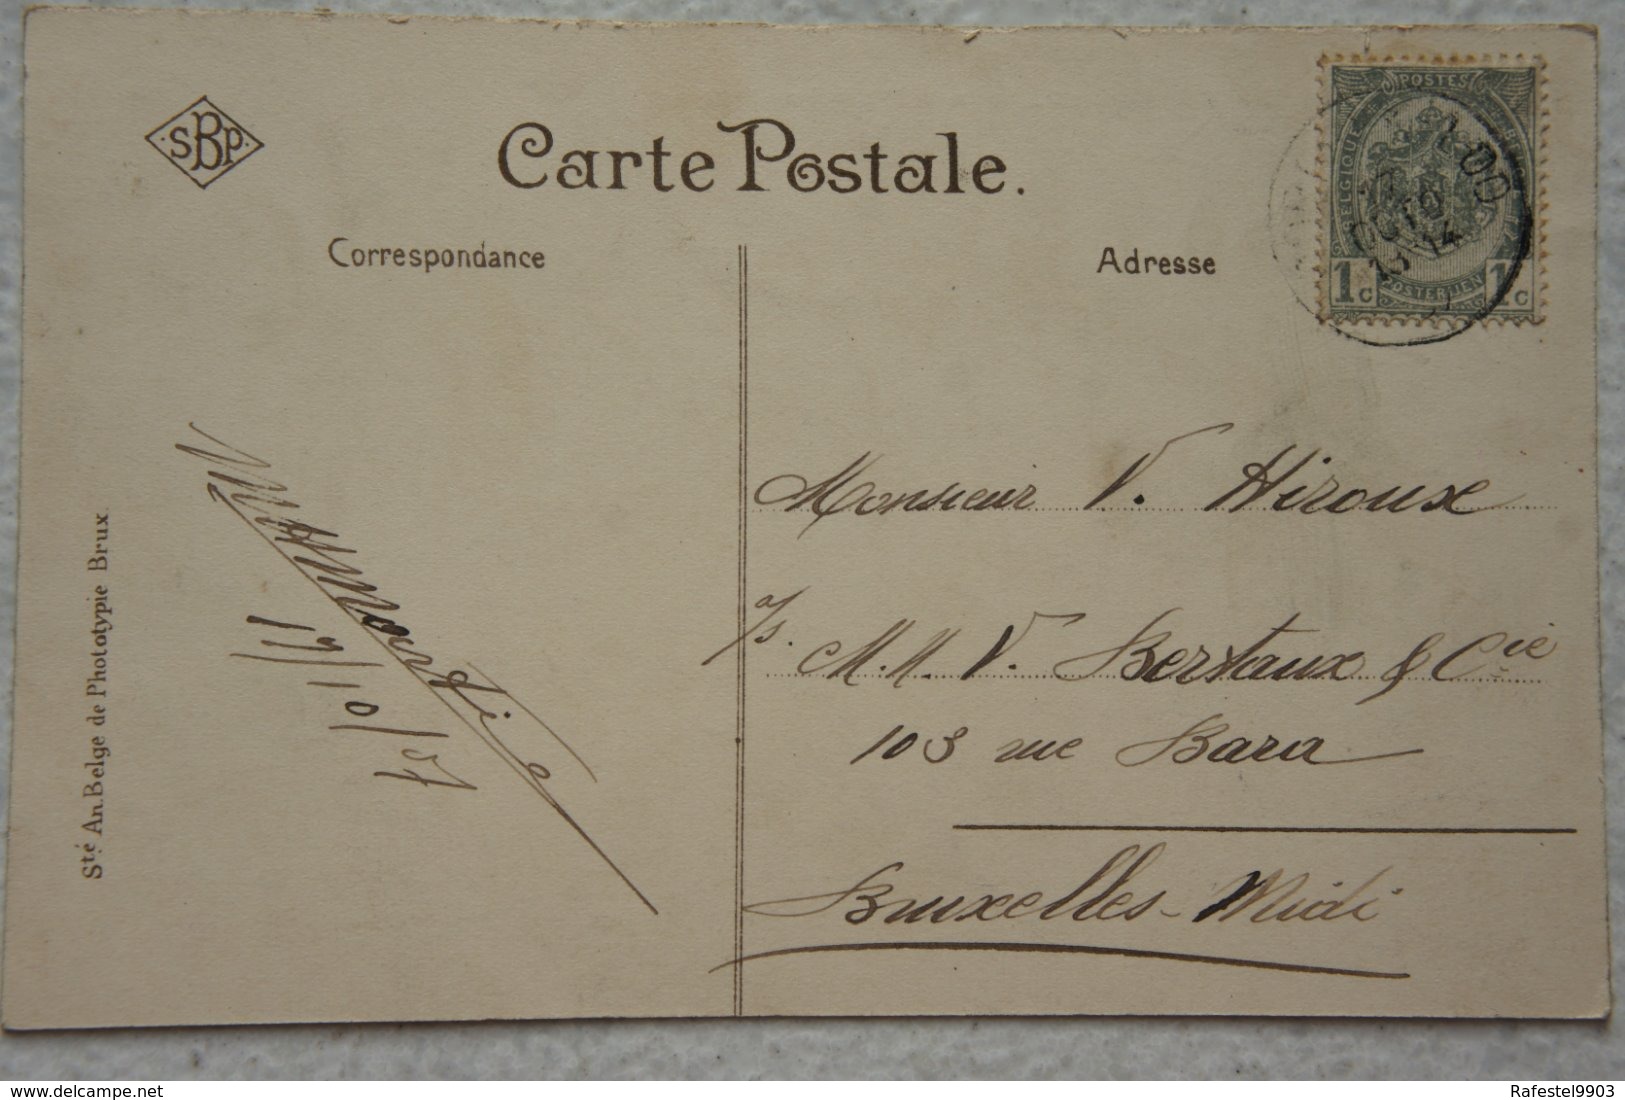 SBP
Carte Postale.
Correspondance
Adresse
POSTES
BELGIQUE
OCTO
13-14
1c 1c
POSTERIJEN
Monsieur V. Hiroux
a/s. M.M. V. Bertaux & Cie
103 rue Bara
Bruxelles-Midi
17/10/07
Sté An. Belge de Phototypie Brux
www.delcampe.net
Rafestel9903